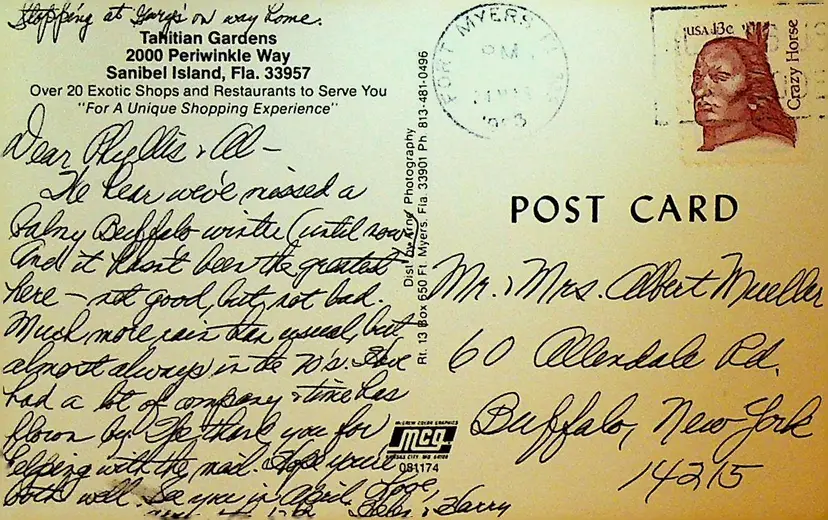 Stopping at Gary's on way home.
Tahitian Gardens
2000 Periwinkle Way
Sanibel Island, Fla. 33957
Over 20 Exotic Shops and Restaurants to Serve You
"For A Unique Shopping Experience"
Dear Phyllis & Al -
We hear we've missed a
balmy Buffalo winter (until now)
And it hasn't been the greatest
here - not good, but not bad.
Much more rain than usual, but
almost always in the 70's. Have
had a lot of company & time has
flown by. We thank you for
helping with the mail. Hope you're
both well. See you in April. Love,
& Harry
Dist. by Arne Photography
Rt. 13 Box 650 Ft. Myers, Fla. 33901 Ph. 813-481-0496
McGREW COLOR GRAPHICS
mcg
KANSAS CITY, MO 64108
081174
FORT MYERS, FL
PM
1983
USA 13c
Crazy Horse
POST CARD
Mr. & Mrs. Albert Mueller
60 Allendale Rd.
Buffalo, New York
14215